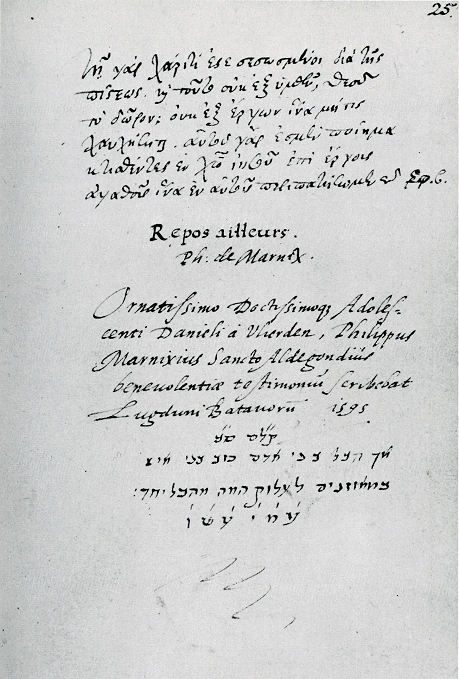 25.
τῇ γὰρ χάριτί ἐσε σεσωσμένοι διὰ τῆς
πίσεως, καὶ τοῦτο οὐκ ἐξ ὑμῶν, θεοῦ
τὸ δῶρον; οὐκ ἐξ ἔργων ἵνα μήτις
καυχήσηται. αὐτοῦ γὰρ ἐσμὲν ποίημα
κτισθέντες ἐν χῷ ἰησοῦ ἐπὶ ἔργοις
ἀγαθοῖς ἵνα ἐν αὐτοῖς περιπατήσωμεν Εφ. β.
Repos ailleurs.
Ph: de Marnix.
Ornatissimo Doctissimoqꝫ Adoles-
centi Danieli à Vlierden, Philippus
Marnixius Sancto Aldegondius
benevolentiæ testimoniū scribebat
Lugduni Batavorū 1595
תלים סב
אך הבל בני אדם כזב בני איש
במאזנים לעלות המה מהבל יחד:
ע ח י ע ש ו